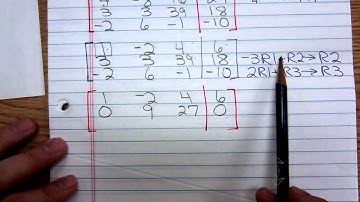 3 3 39 18
-2 6 -1 -10
1 -2 4 6
3 3 39 18 -3R1+R2→R2
-2 6 -1 -10 2R1+R3→R3
1 -2 4 6
0 9 27 0